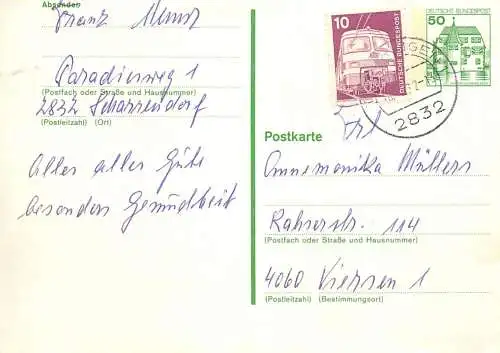 Absender
Franz
Paradiesweg 1
(Postfach oder Straße und Hausnummer)
2832 Scharrendorf
(Postleitzahl) (Ort)
Alles alles Gute
besonders Gesundheit
10
DEUTSCHE BUNDESPOST
DEUTSCHE BUNDESPOST
50
2832
Postkarte
Frl
Annemonika Müllers
Rahserstr. 114
(Postfach oder Straße und Hausnummer)
4060 Viersen 1
(Postleitzahl) (Bestimmungsort)